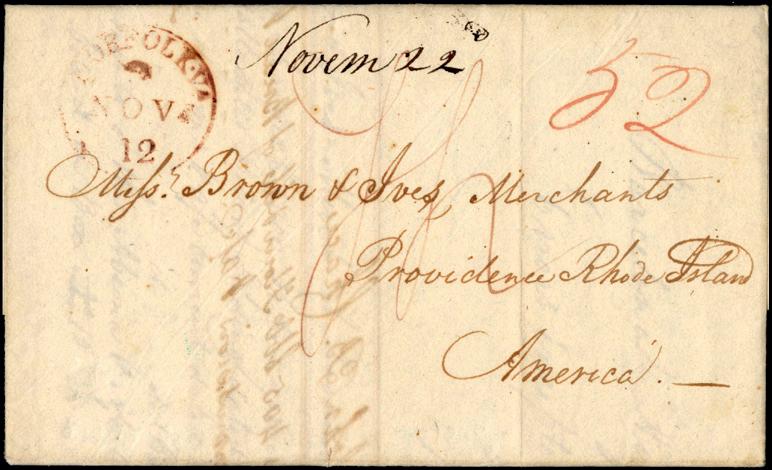 NORFOLK·VA
NOV
12
Novem 22
52
Messrs. Brown & Ives, Merchants
Providence Rhode Island
America.